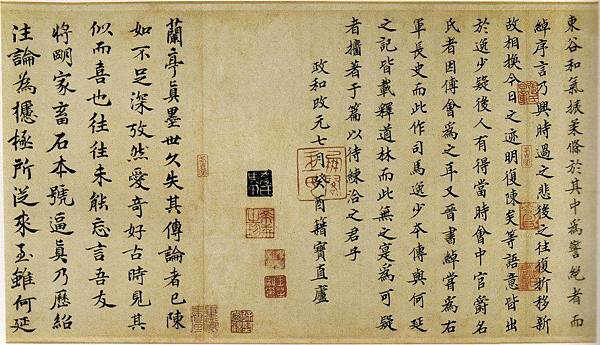 東谷和氣振柔條於其中為警絕者而
綽序言乃興時過之悲後之往復折移新
故相換今日之迹明復陳矣等語意皆出
於逸少疑後人有得當時會中官爵名
氏者因傅會為之耳又晉書綽嘗為右
軍長史而此作司馬逸少本傳與何延
之記皆載釋道林而此無之寔為可疑
者著于篇以待練洽之君子
政和改元七月癸酉籍寶直廬
蘭亭真墨世久失其傳論者已陳
如不足深攷然愛奇好古時見其
似而喜也往往未能忘言吾友
將朙家畜石本號逼真乃歷紹
注論為攄極所從來至雖何延